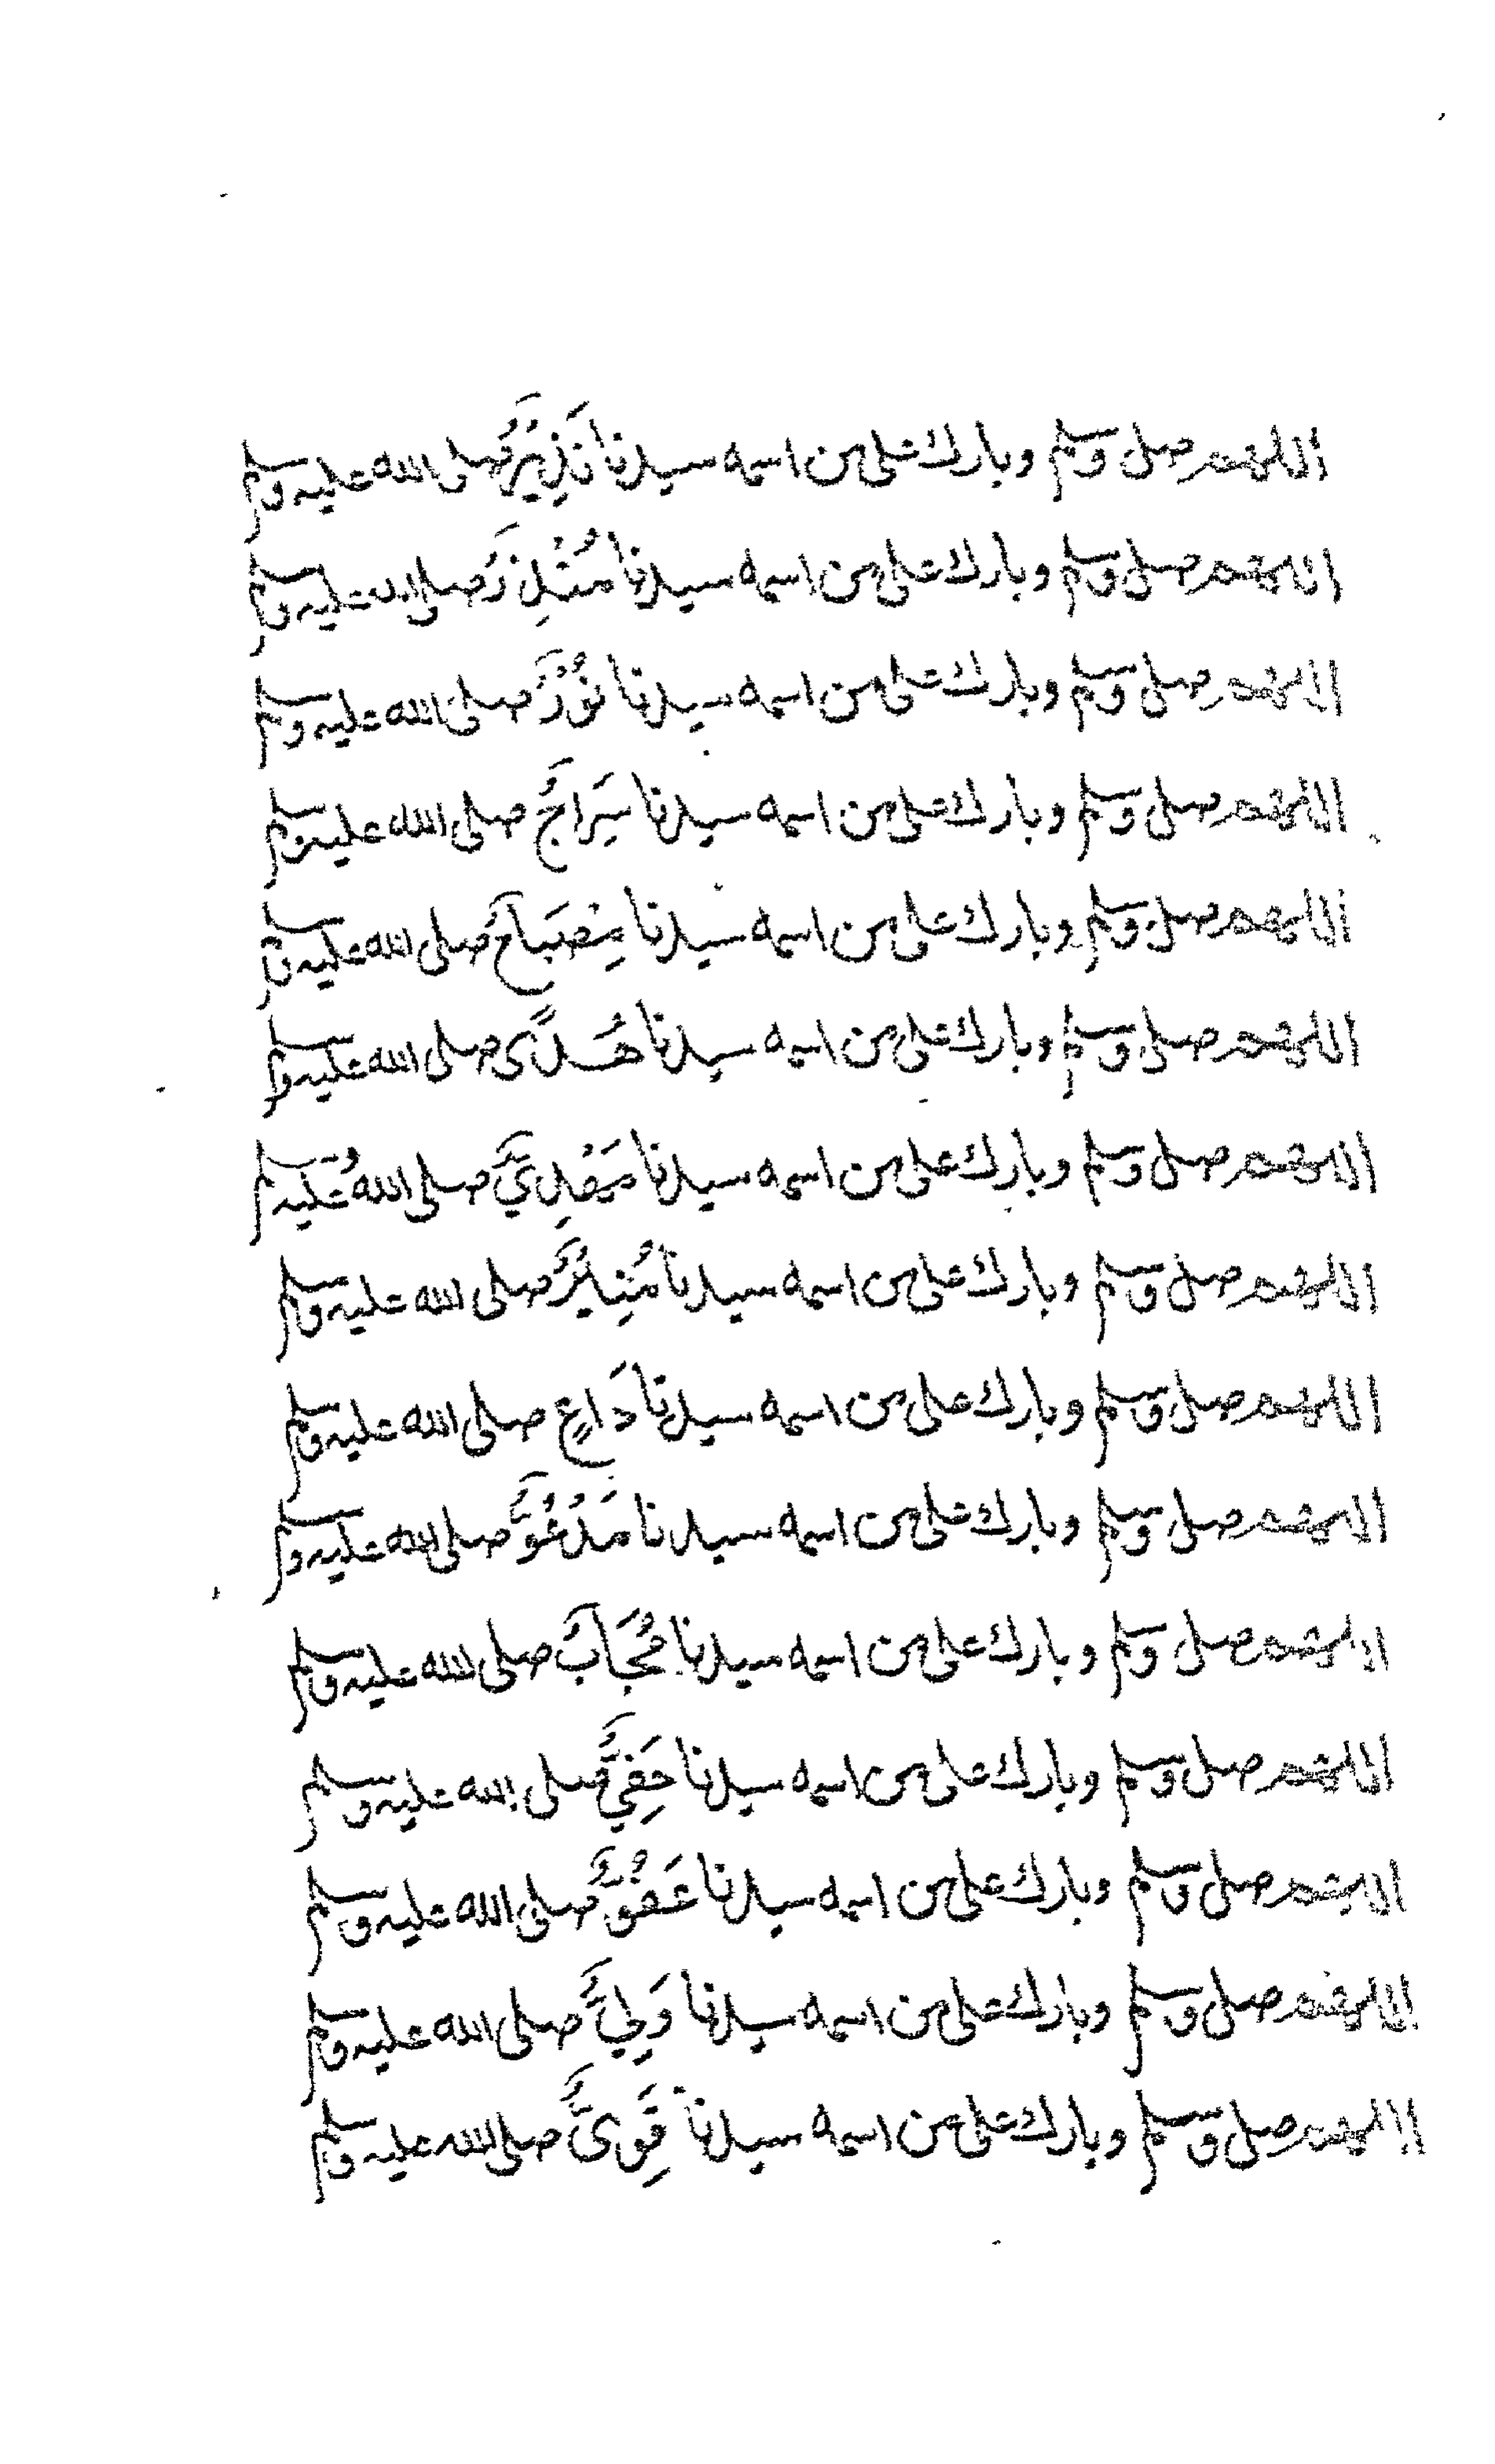 اللهم صل وسلم وبارك على من اسمه سيدنا نَذِيرٌ صلى الله عليه وسلم
اللهم صل وسلم وبارك على من اسمه سيدنا مُنْذِرٌ صلى الله عليه وسلم
اللهم صل وسلم وبارك على من اسمه سيدنا نُوْرٌ صلى الله عليه وسلم
اللهم صل وسلم وبارك على من اسمه سيدنا سِرَاجٌ صلى الله عليه وسلم
اللهم صل وسلم وبارك على من اسمه سيدنا مِصْبَاحٌ صلى الله عليه وسلم
اللهم صل وسلم وبارك على من اسمه سيدنا هُدًى صلى الله عليه وسلم
اللهم صل وسلم وبارك على من اسمه سيدنا مَهْدِيٌّ صلى الله عليه وسلم
اللهم صل وسلم وبارك على من اسمه سيدنا مُنِيرٌ صلى الله عليه وسلم
اللهم صل وسلم وبارك على من اسمه سيدنا دَاعٍ صلى الله عليه وسلم
اللهم صل وسلم وبارك على من اسمه سيدنا مَدْعُوٌّ صلى الله عليه وسلم
اللهم صل وسلم وبارك على من اسمه سيدنا مُجَابٌ صلى الله عليه وسلم
اللهم صل وسلم وبارك على من اسمه سيدنا حَفِيٌّ صلى الله عليه وسلم
اللهم صل وسلم وبارك على من اسمه سيدنا عَفُوٌّ صلى الله عليه وسلم
اللهم صل وسلم وبارك على من اسمه سيدنا وَلِيٌّ صلى الله عليه وسلم
اللهم صل وسلم وبارك على من اسمه سيدنا قَوِىٌّ صلى الله عليه وسلم